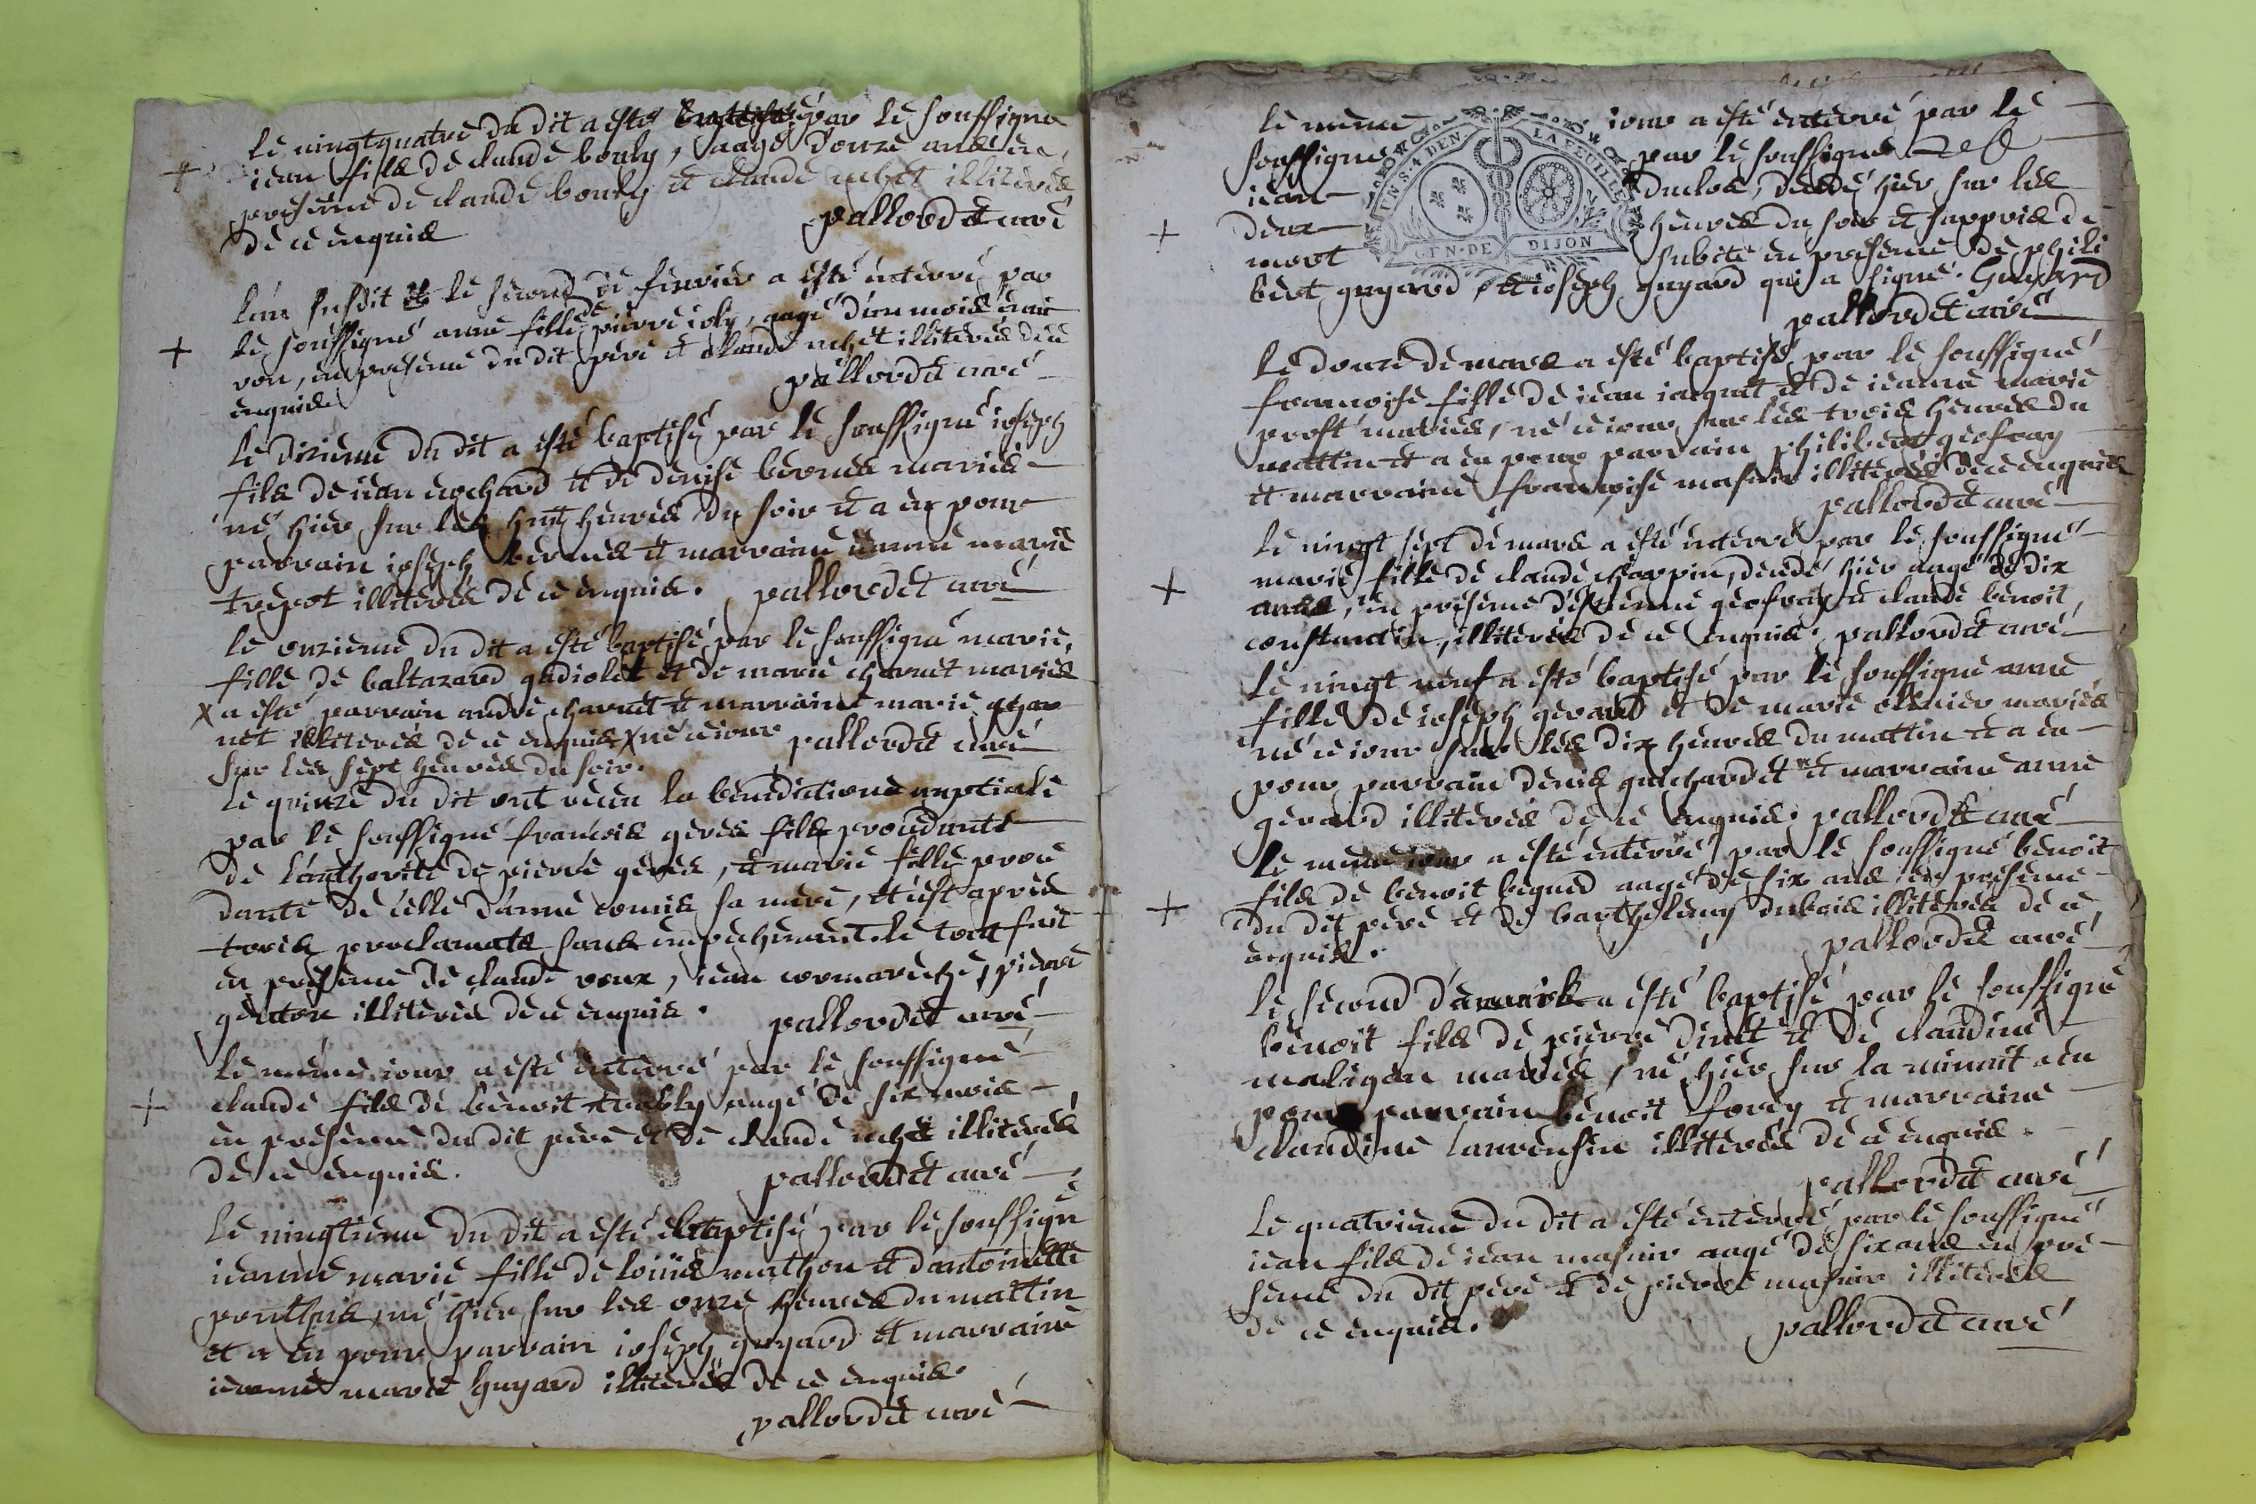 le vingtquatre du dit a esté par le souffigné
iean fils de claude bouly, aagé d'onze ans en
presence de claude bouly et claude illiterés
de ce enquis pallordet curé
l'an susdit le second de feuvrier a esté enterré par
le souffigné anne fille de pierre ioly, aagé d'un mois envi
ron, en presence du dit pere et claude illiterés de ce
enquis pallordet curé
le dixieme du dit a esté baptisé par le souffigné ioseph
fils de iean et de denise bernes mariés
né hier sur les huit heures du soir et a eu pour
parrain ioseph bernes et marraine ieanne marie
trepot illiterés de ce enquis. pallordet curé
le onzieme du dit a esté baptisé par le souffigné marie,
fille de baltazard gadiolet et de marie charnet mariés
X a esté parrain andré charnet et marraine marie char
net illiterés de ce enquis X né ce iour pallordet curé
sur les sept heures du soir.
le quinze du dit ont receu la benedictione nuptiale
par le souffigné francois geres fils proudante
de l'authorité de pierre geres, et marie fille prou
dante de celle d'anne comis sa mere, et c'est apres
trois proclamats sans empechement. le tout fait
en presence de claude roux, iean cormareche, pierre
illiterés de ce enquis. pallordet curé
le meme iour a esté enterré par le souffigné
claude fils de benoit aagé de six mois
en presence du dit pere et de claude illiterés
de ce enquis. pallordet curé
le vingtieme du dit a esté baptisé par le souffigné
ieanne marie fille de loüis mathon et d'antoinette
ponthus, né hier sur les onze heures du mattin
et a eu pour parrain ioseph guyard et marraine
ieanne marie guyard illiterés de ce enquis
pallordet curé
le meme iour a esté enterré par le
souffigné par le souffigné
iean duclos, decedé hier sur les
deux heures du soir et surpris de
mort subite en presence de phili
bert guyard, et ioseph guyard qui a signé. Guyard
pallordet curé
UN S. 4 DEN. LA FEUILLE
G<sup></sup>EN. DE DIJON
le douze de mars a esté baptisé par le souffigné
francoise fille de iean iacquet et de ieanne marie
prost mariés, né ce iour sur les trois heures du
mattin et a eu pour parrain philibert geofray
et marraine francoise masuir illiterés de ce enquis
pallordet curé
le vingt sept de mars a esté enterré par le souffigné
marie fille de claude charpin, decedé hier aagé de dix
ans, en presence d'estienne geofray et claude benoit
constantin, illiterés de ce enquis. pallordet curé
le vingt neuf a esté baptisé par le souffigné anne
fille de ioseph gerard et de marie mariés
né ce iour sur les dix heures du mattin et a eu
pour parrain denis guichardet et marraine anne
gerard illiterés de ce enquis. pallordet curé
le meme iour a esté enterré par le souffigné benoit
fils de benoit aagé de six ans en presence
du dit pere et de barthelemy dubois illiterés de ce
enquis. pallordet curé
le second d'avril a esté baptisé par le souffigné
benoit fils de pierre et de claudine
mariés, né hier sur la minuit a eu
pour parrain benoit forey et marraine
claudine laurensin illiterés de ce enquis.
pallordet curé
le quatrieme du dit a esté enterré par le souffigné
iean fils de iean masuir aagé de six ans en pre
sence du dit pere et de pierre masuir illiterés
de ce enquis. pallordet curé